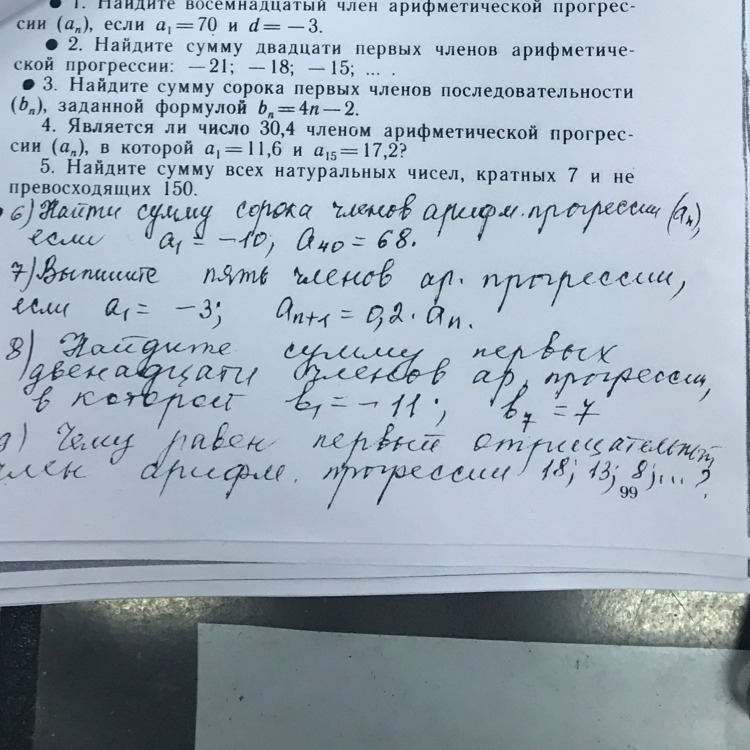 ● 1. Найдите восемнадцатый член арифметической прогрес-
сии (aₙ), если a₁=70 и d=−3.
● 2. Найдите сумму двадцати первых членов арифметиче-
ской прогрессии: −21; −18; −15; ... .
● 3. Найдите сумму сорока первых членов последовательности
(bₙ), заданной формулой bₙ=4n−2.
4. Является ли число 30,4 членом арифметической прогрес-
сии (aₙ), в которой a₁=11,6 и a₁₅=17,2?
5. Найдите сумму всех натуральных чисел, кратных 7 и не
превосходящих 150.
6) Найти сумму сорока членов арифм. прогрессии (aₙ),
если a₁ = −10; a₄₀ = 68.
7) Выпишите пять членов ар. прогрессии,
если a₁ = −3; aₙ₊₁ = 0,2 · aₙ.
8) Найдите сумму первых
двенадцати членов ар. прогрессии,
в которой b₁ = −11; b₇ = 7
9) Чему равен первый отрицательный
член арифм. прогрессии 18; 13; 8; ... ?
99